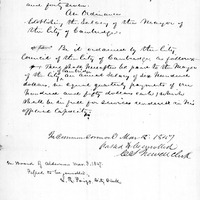 and forty seven.
An Ordinance
Establishing the Salary of the Mayor of
the City of Cambridge.
Be it ordained by the City
Council of the City of Cambridge as follows
There shall hereafter be paid to the Mayor
of Cambridge
of the City an annual Salary of Six Hundred
dollars, in equal quarterly payments of One
hundred and fifty dollars each, which
shall be in full for services rendered in his
official capacity.
In Common Council Mar. 2. 1847
Passed to be enrolled
Clerk
In Board of Aldermen Mar. 3. 1847.
City Clerk